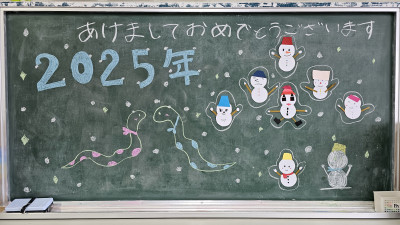 あけましておめでとうございます
2025年